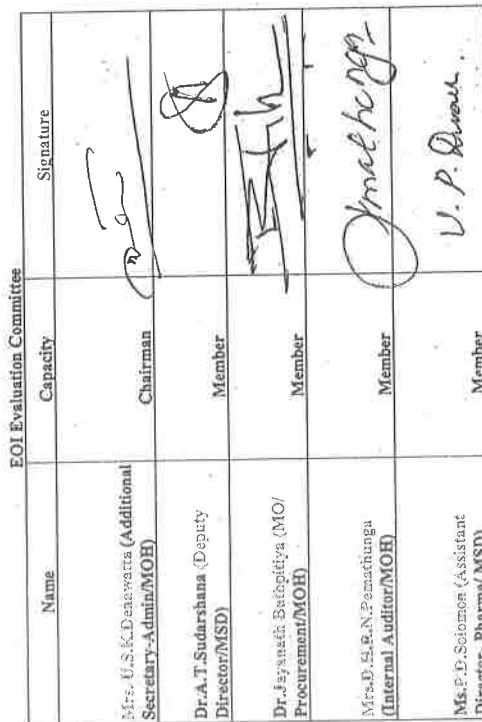 EOI Evaluation Committee
Name Capacity Signature
Mrs. U.S.K.Denawatta (Additional
Secretary-Admin/MOH) Chairman
Dr.A.T.Sudarshana (Deputy
Director/MSD) Member
Dr.Jayanath Bathpitiya (MO/
Procurement/MOH) Member
Mrs.D.H.R.N.Pemathunga
(Internal Auditor/MOH) Member
Ms.P.D.Solomon (Assistant
Director- Pharma/ MSD) Member